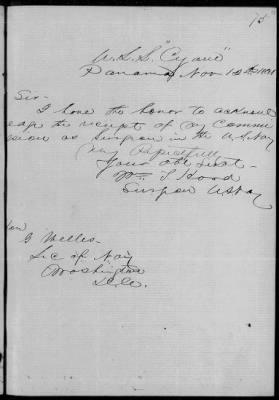 75
U.S.S. "Cyane"
Panama, Nov 12th 1861
Sir.
I have the honor to acknowl
edge the receipt of my Commis
sion as Surgeon in the U.S. Navy
Very Respectfully
Your Obt Servt
Wm T Hord
Surgeon US Navy
Hon
G Welles
Sec of Navy
Washington
D.C.